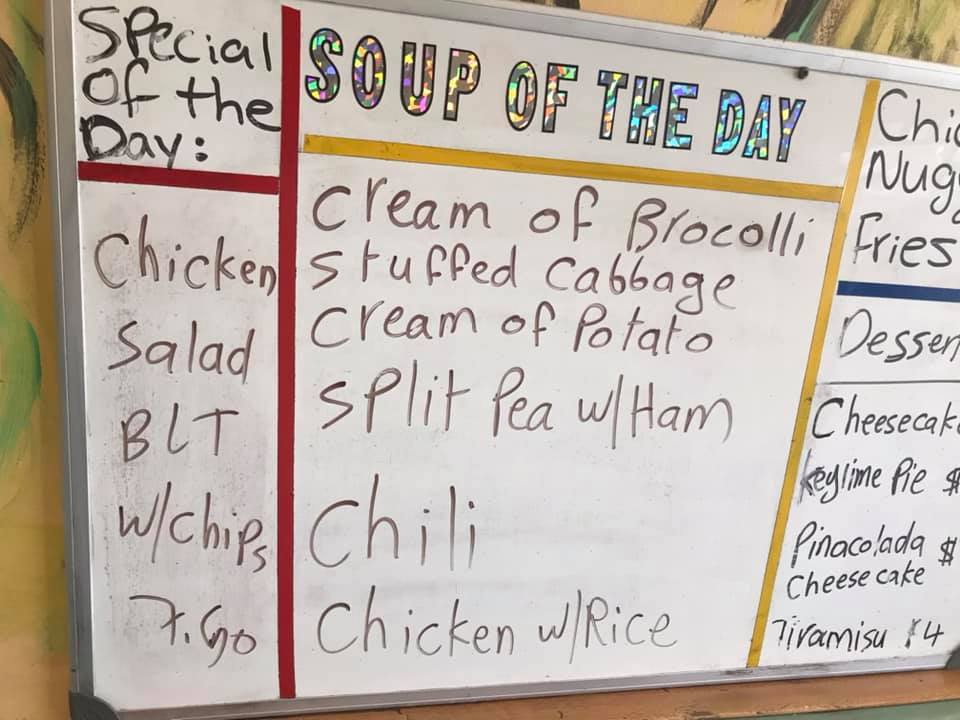 Special
Of the
Day:
Chicken
Salad
BLT
w/chips
SOUP OF THE DAY
Cream of Brocolli
Stuffed Cabbage
Cream of Potato
Split Pea w/Ham
Chili
Chicken w/Rice
Chic
Nugg
Fries
Desser
Cheesecake
Keylime Pie $
Pinacolada $
Cheesecake
Tiramisu $4